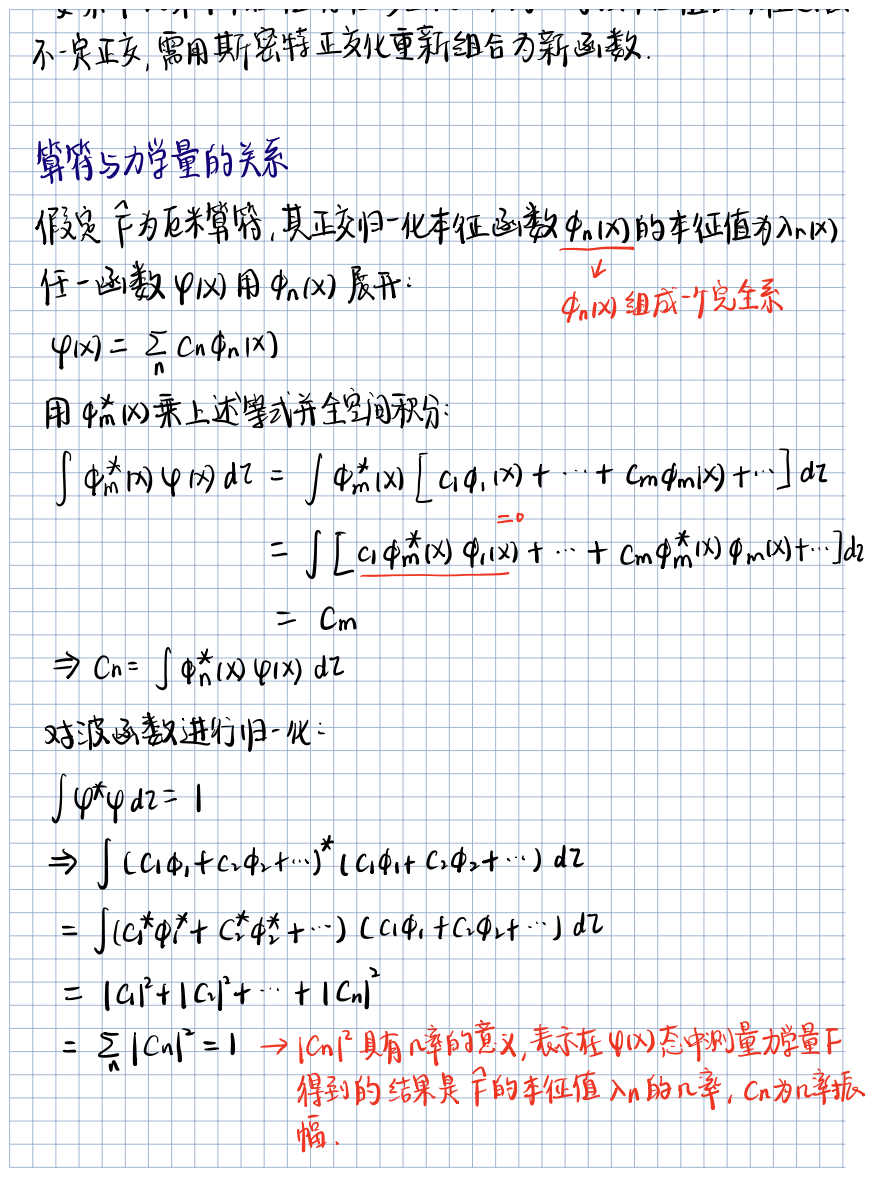 不一定正交，需用斯密特正交化重新组合为新函数.
算符与力学量的关系
假定 F̂ 为厄米算符，其正交归一化本征函数 ϕn(x) 的本征值为 λn(x)
任一函数 φ(x) 用 ϕn(x) 展开：
ϕn(x) 组成一个完全系
φ(x) = Σn Cn ϕn(x)
用 ϕm*(x) 乘上述等式并全空间积分：
∫ ϕm*(x) φ(x) dτ = ∫ ϕm*(x) [ C1ϕ1(x) + ⋯ + Cmϕm(x) + ⋯ ] dτ
=0
= ∫ [ C1ϕm*(x) ϕ1(x) + ⋯ + Cmϕm*(x) ϕm(x) + ⋯ ] dτ
= Cm
⇒ Cn = ∫ ϕn*(x) φ(x) dτ
对波函数进行归一化：
∫ φ*φ dτ = 1
⇒ ∫ (C1ϕ1 + C2ϕ2 + ⋯)* (C1ϕ1 + C2ϕ2 + ⋯) dτ
= ∫ (C1*ϕ1* + C2*ϕ2* + ⋯) (C1ϕ1 + C2ϕ2 + ⋯) dτ
= |C1|² + |C2|² + ⋯ + |Cn|²
= Σn |Cn|² = 1 → |Cn|² 具有几率的意义，表示在 φ(x) 态中测量力学量 F
得到的结果是 F̂ 的本征值 λn 的几率，Cn 为几率振
幅.